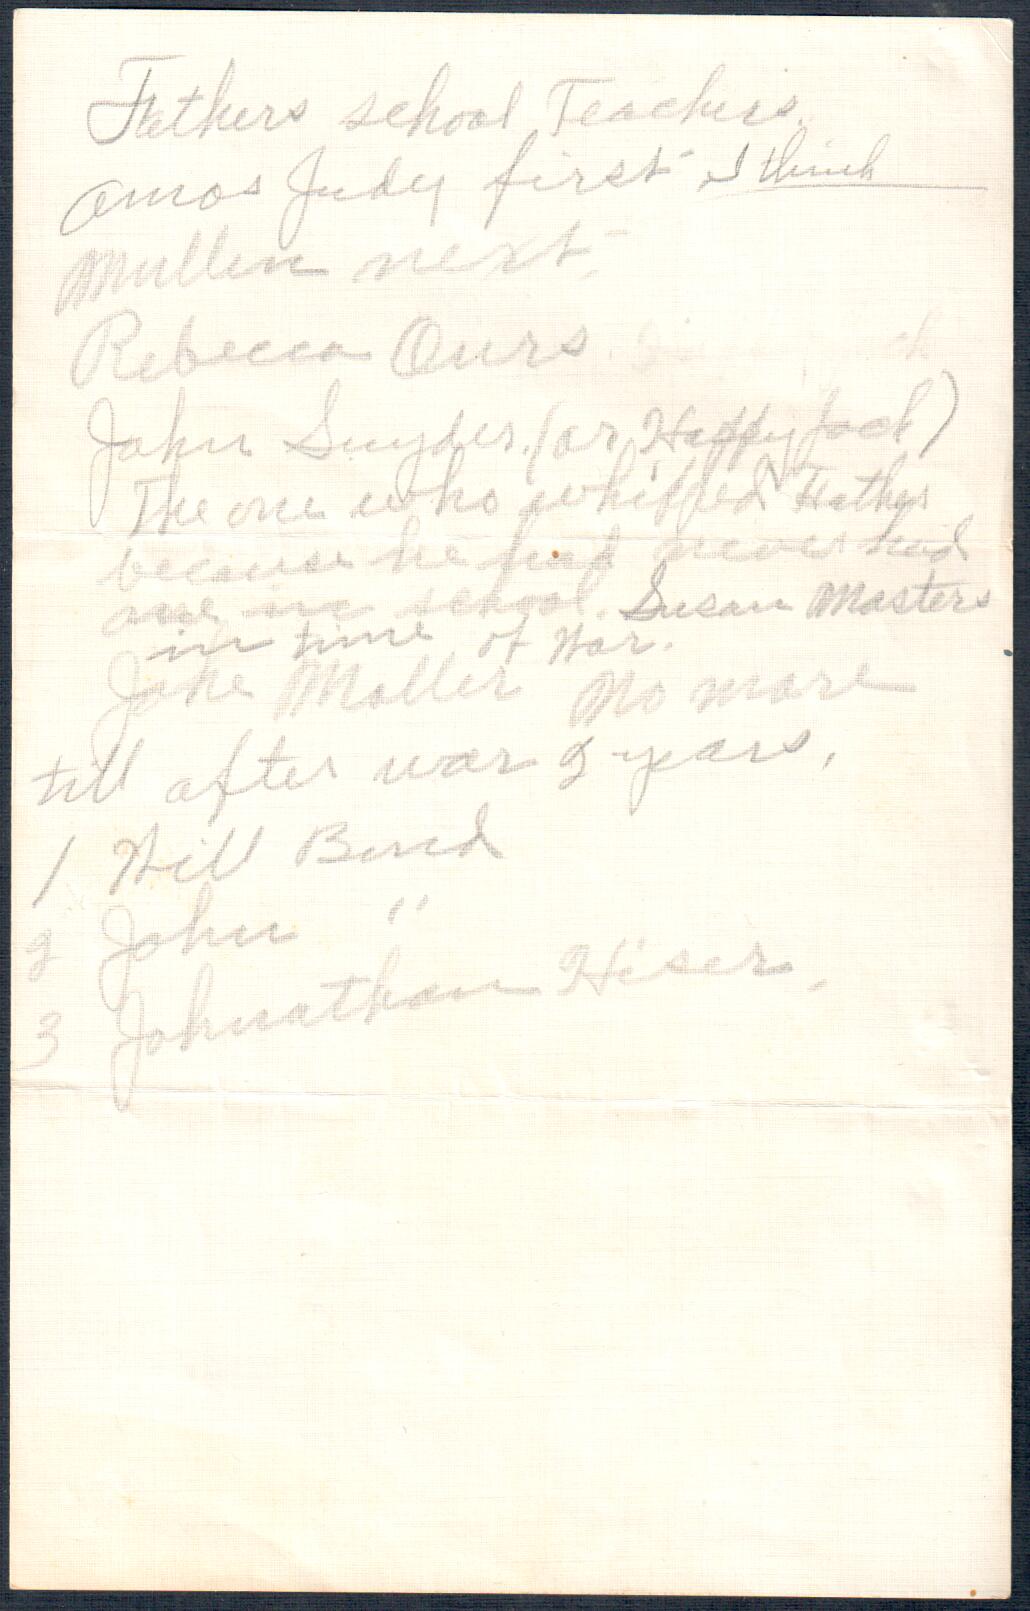 Fathers school Teachers.
Amos Judy first I think
Mullen next.
Rebecca Ours
John Snyder (or Happy Jack)
The one who whipped Father
because he had never had
one in school. Susan Masters
in time of War.
Jake Moller No more
till after war 2 years.
1 Will Bond
2 John "
3 Johnathan Hiser.